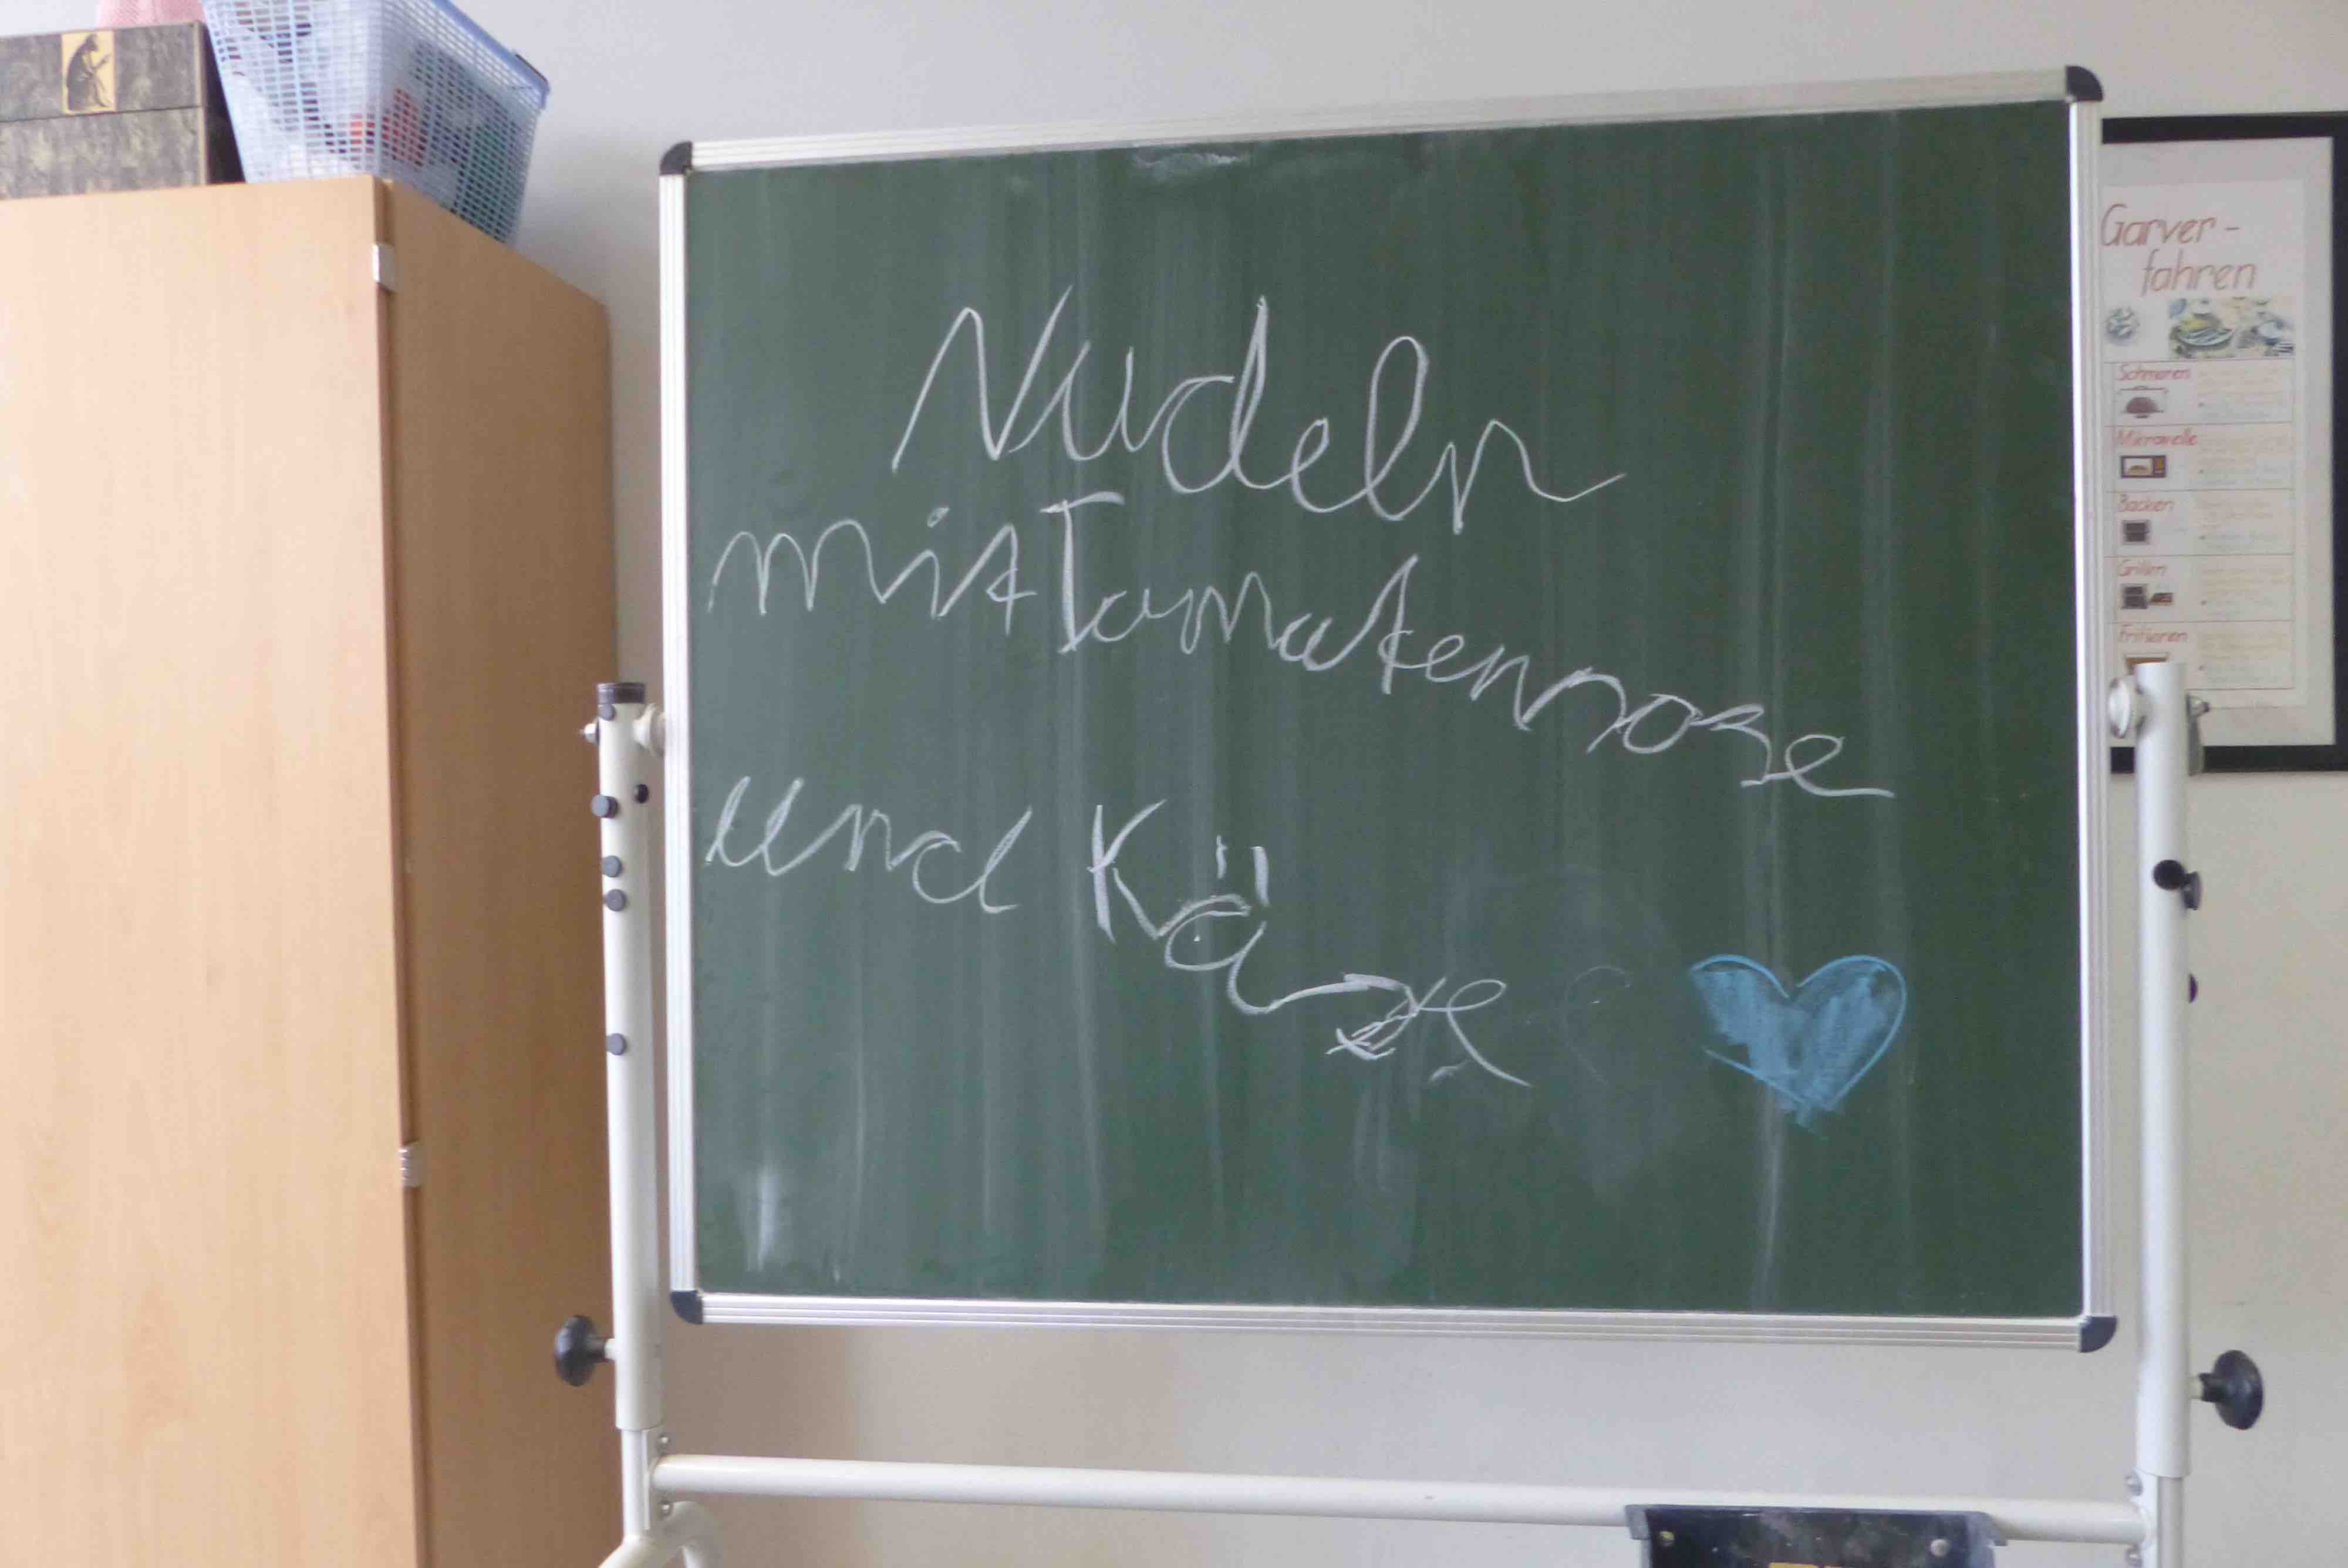 Nudeln
mit Tomatensose
und Käse
Garver-
fahren
Schmoren
Mikrowelle
Backen
Grillen
Frittieren